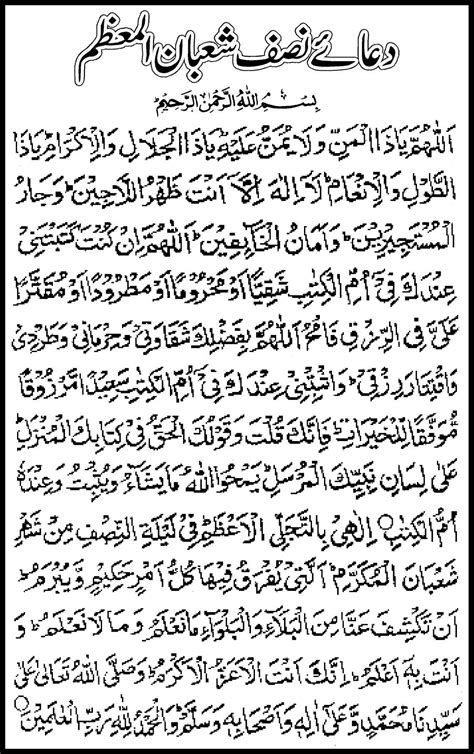 دعائے نصف شعبان المعظم
بِسْمِ اللهِ الرَّحْمٰنِ الرَّحِيْمِ
اَللّٰهُمَّ يَاذَا الْمَنِّ وَلَا يُمَنُّ عَلَيْهِ يَاذَا الْجَلَالِ وَالْاِكْرَامِ يَاذَا
الطَّوْلِ وَالْاِنْعَامِ لَا اِلٰهَ اِلَّا اَنْتَ ظَهْرُ اللَّاجِيْنَ وَجَارُ
الْمُسْتَجِيْرِيْنَ وَاَمَانُ الْخَآئِفِيْنَ اَللّٰهُمَّ اِنْ كُنْتَ كَتَبْتَنِيْ
عِنْدَكَ فِيْ اُمِّ الْكِتٰبِ شَقِيًّا اَوْ مَحْرُوْمًا اَوْ مَطْرُوْدًا اَوْ مُقَتَّرًا
عَلَيَّ فِي الرِّزْقِ فَامْحُ اَللّٰهُمَّ بِفَضْلِكَ شَقَاوَتِيْ وَحِرْمَانِيْ وَطَرْدِيْ
وَاقْتِتَارَ رِزْقِيْ وَاثْبِتْنِيْ عِنْدَكَ فِيْ اُمِّ الْكِتٰبِ سَعِيْدًا مَّرْزُوْقًا
مُّوَفَّقًا لِّلْخَيْرَاتِ فَاِنَّكَ قُلْتَ وَقَوْلُكَ الْحَقُّ فِيْ كِتَابِكَ الْمُنَزَّلِ
عَلٰى لِسَانِ نَبِيِّكَ الْمُرْسَلِ يَمْحُوا اللهُ مَا يَشَآءُ وَيُثْبِتُ وَعِنْدَهٗ
اُمُّ الْكِتٰبِ ۝ اِلٰهِيْ بِالتَّجَلِّي الْاَعْظَمِ فِيْ لَيْلَةِ النِّصْفِ مِنْ شَهْرِ
شَعْبَانَ الْمُكَرَّمِ الَّتِيْ يُفْرَقُ فِيْهَا كُلُّ اَمْرٍ حَكِيْمٍ وَّيُبْرَمُ
اَنْ تَكْشِفَ عَنَّا مِنَ الْبَلَآءِ وَالْبَلْوَآءِ مَا نَعْلَمُ وَمَا لَا نَعْلَمُ وَ
اَنْتَ بِهٖ اَعْلَمُ اِنَّكَ اَنْتَ الْاَعَزُّ الْاَكْرَمُ وَصَلَّى اللهُ تَعَالٰى عَلٰى
سَيِّدِنَا مُحَمَّدٍ وَّعَلٰى اٰلِهٖ وَاَصْحَابِهٖ وَسَلَّمَ وَالْحَمْدُ لِلّٰهِ رَبِّ الْعٰلَمِيْنَ ۝